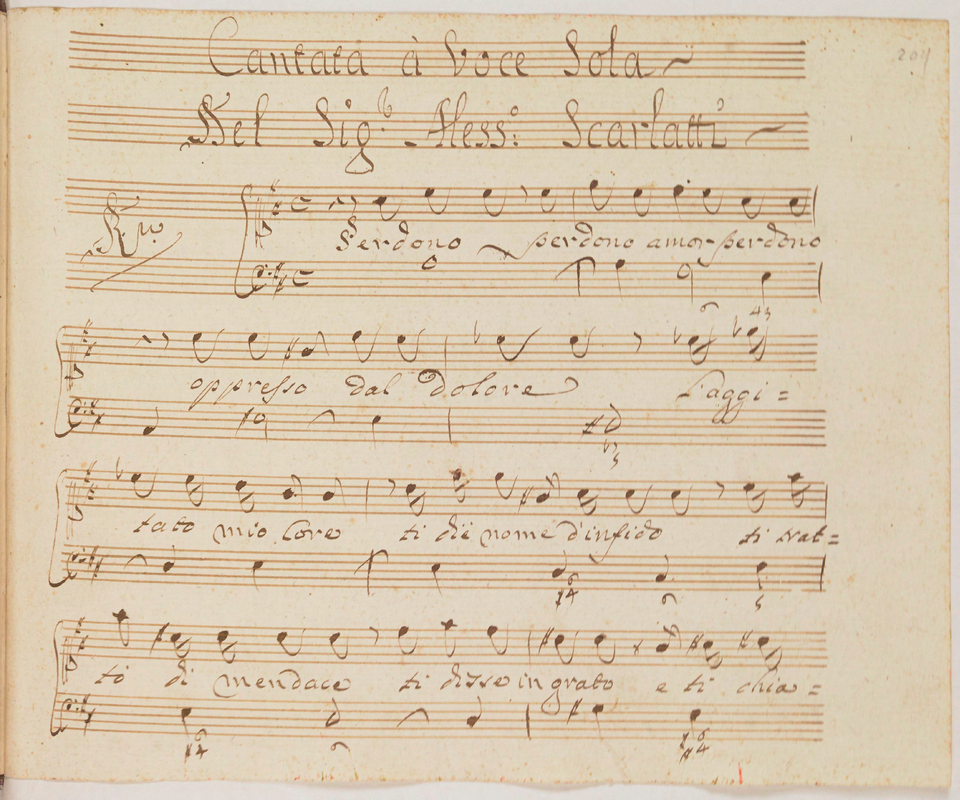 Cantata à Voce Sola
Del Sig.r Aless:o Scarlatti
204
Perdono perdono amor perdono
oppresso dal dolore l'aggi=
tato mio Core ti diè nome d'infido ti trat=
tò di mendace ti disse ingrato e ti chia=